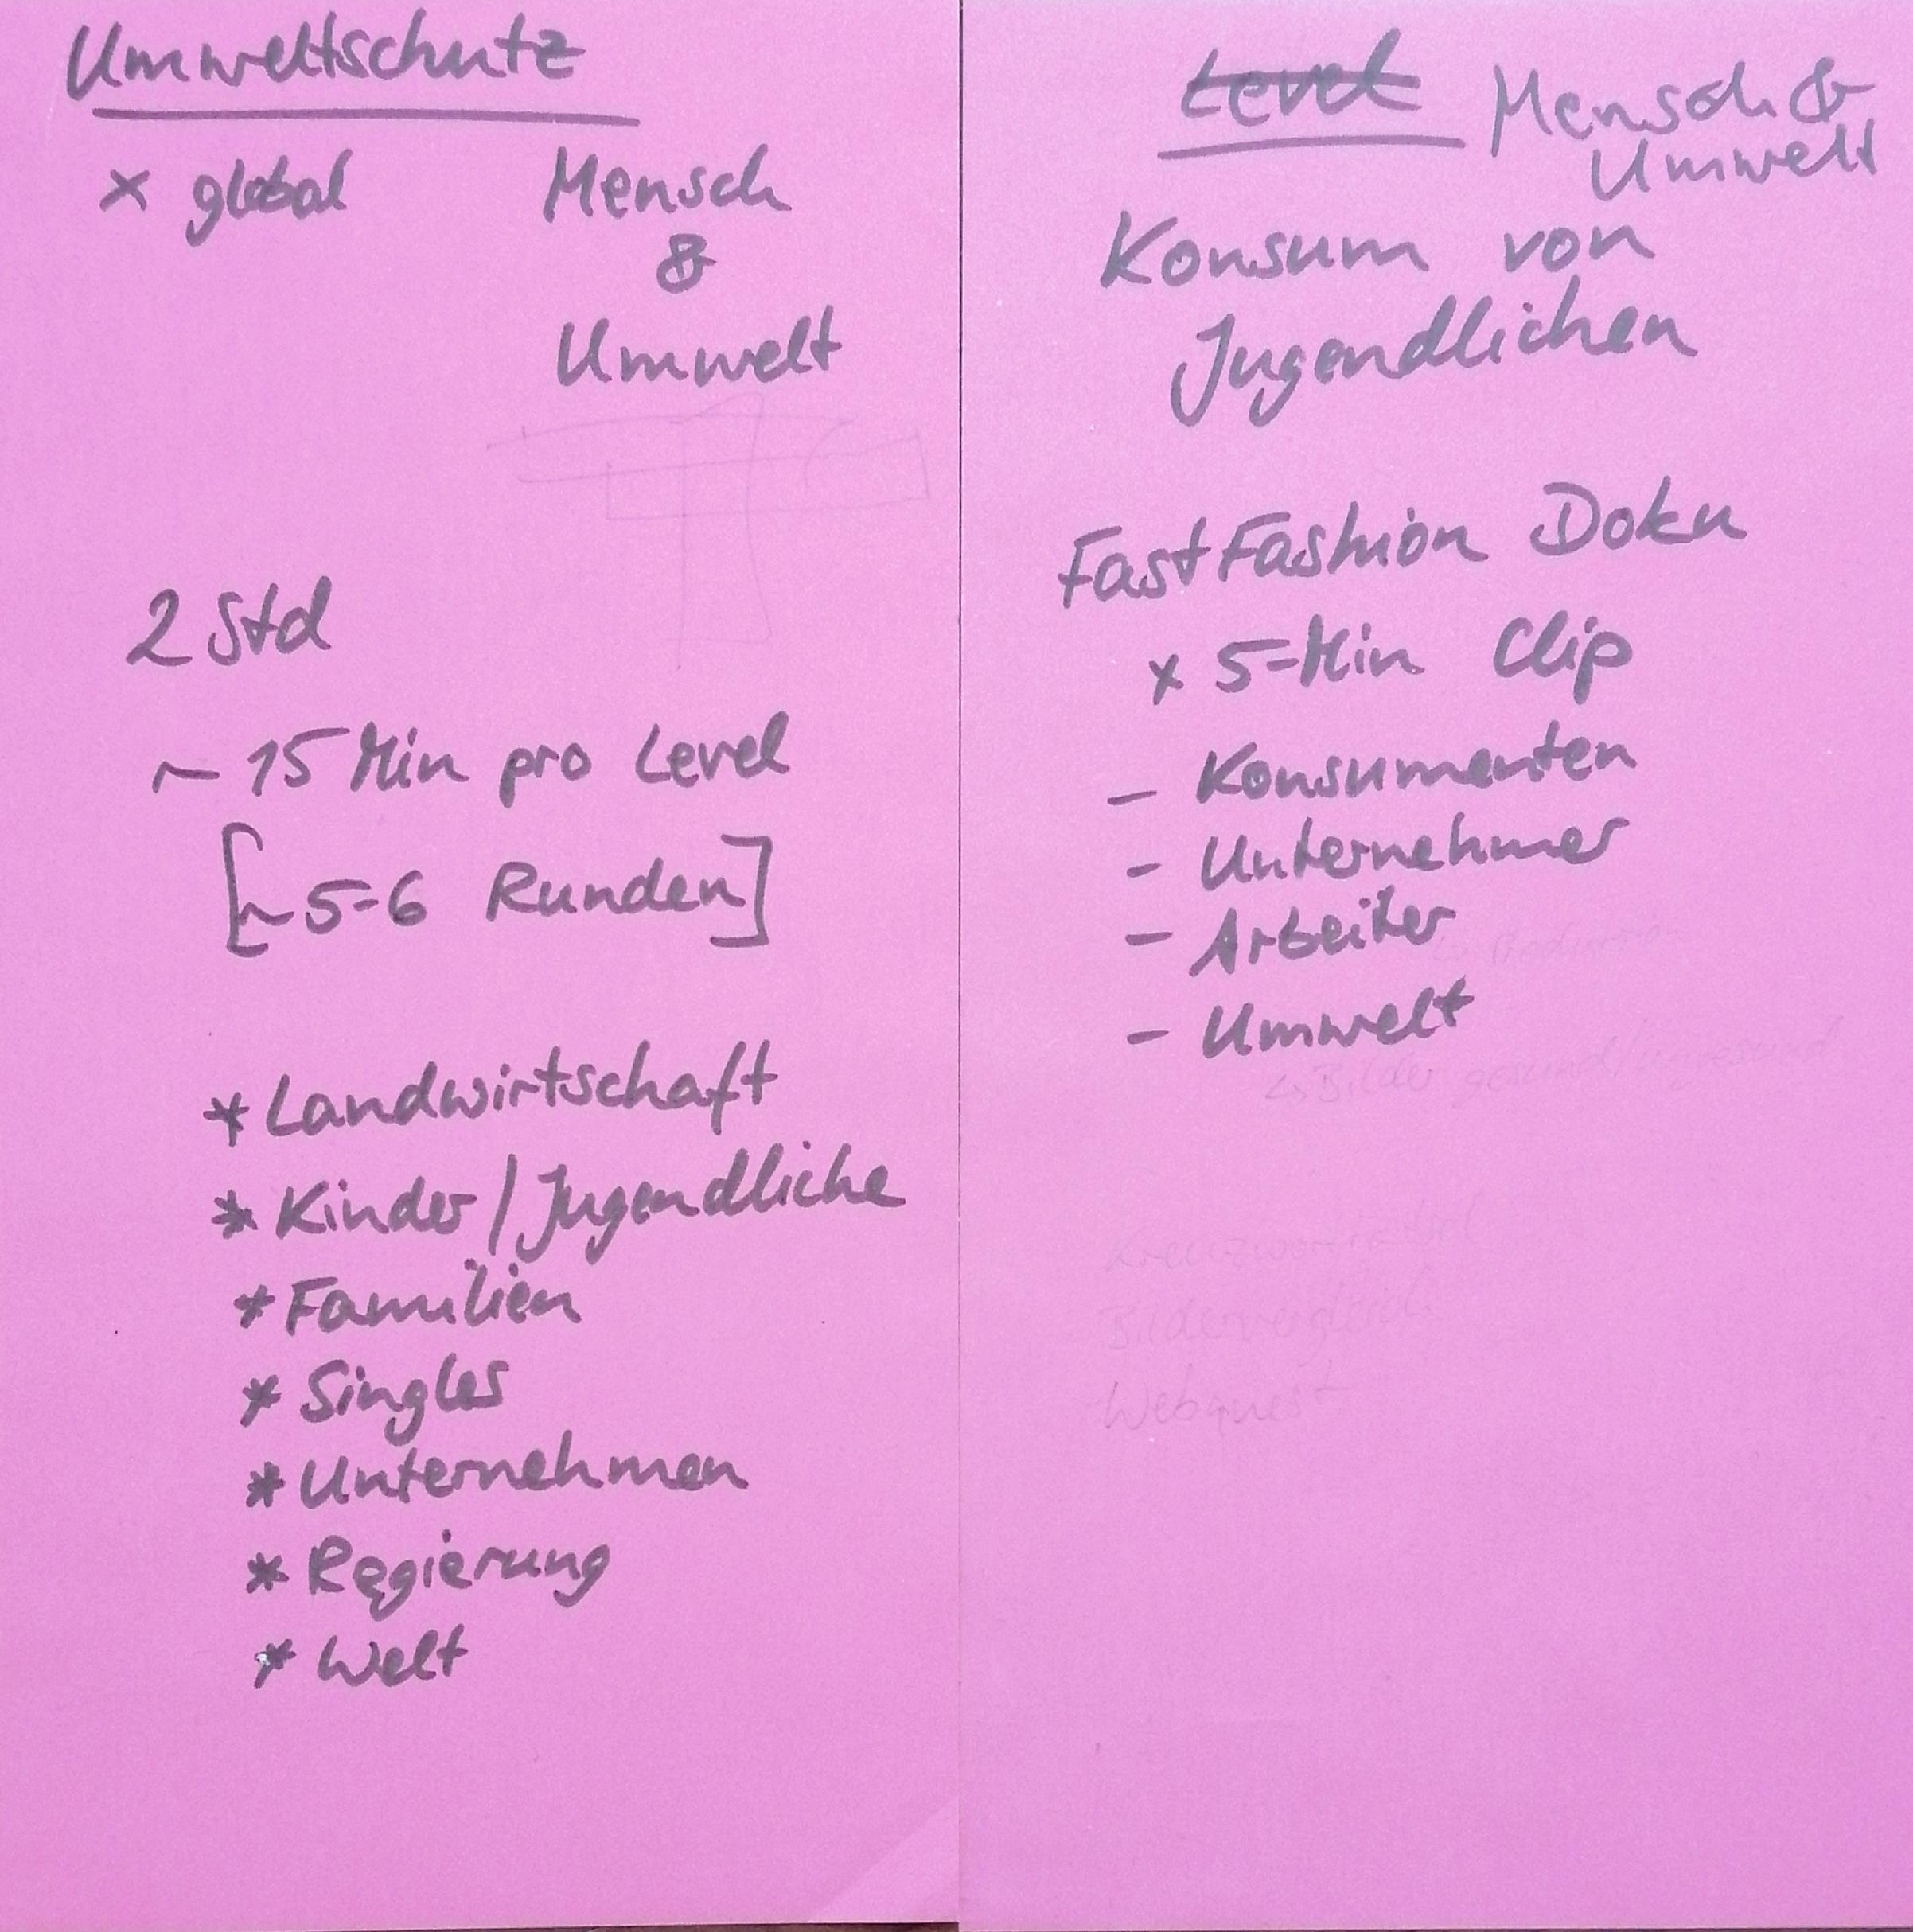 Umweltschutz
x global
Mensch
&
Umwelt
2 Std
~ 15 Min pro Level
[~ 5-6 Runden]
* Landwirtschaft
* Kinder / Jugendliche
* Familien
* Singles
* Unternehmen
* Regierung
* Welt
Level Mensch &
Umwelt
Konsum von
Jugendlichen
Fast Fashion Doku
x 5-Min Clip
- Konsumenten
- Unternehmer
- Arbeiter
↳ Produktion
- Umwelt
↳ Bilder gesund/ungesund
Kreuzworträtsel
Bildervergleich
Webquest